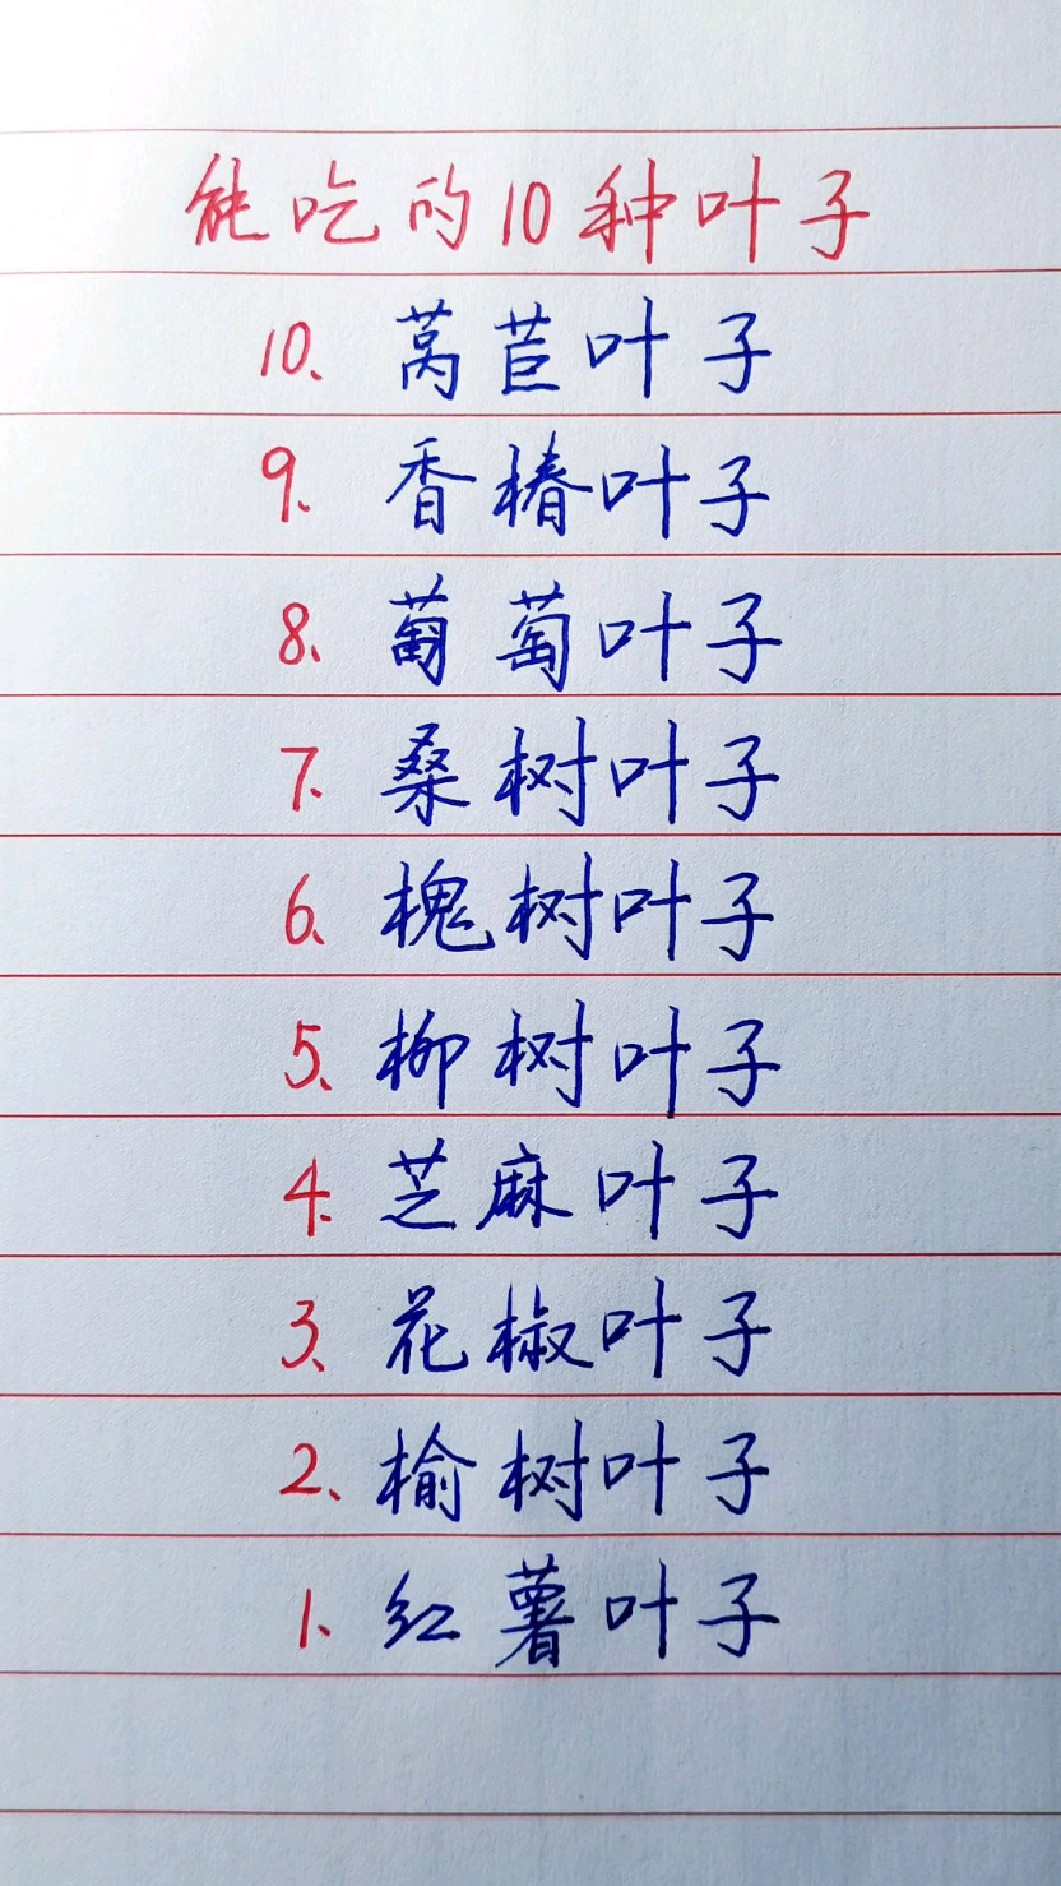 能吃的10种叶子
10、莴苣叶子
9、香椿叶子
8、葡萄叶子
7、桑树叶子
6、槐树叶子
5、柳树叶子
4、芝麻叶子
3、花椒叶子
2、榆树叶子
1、红薯叶子